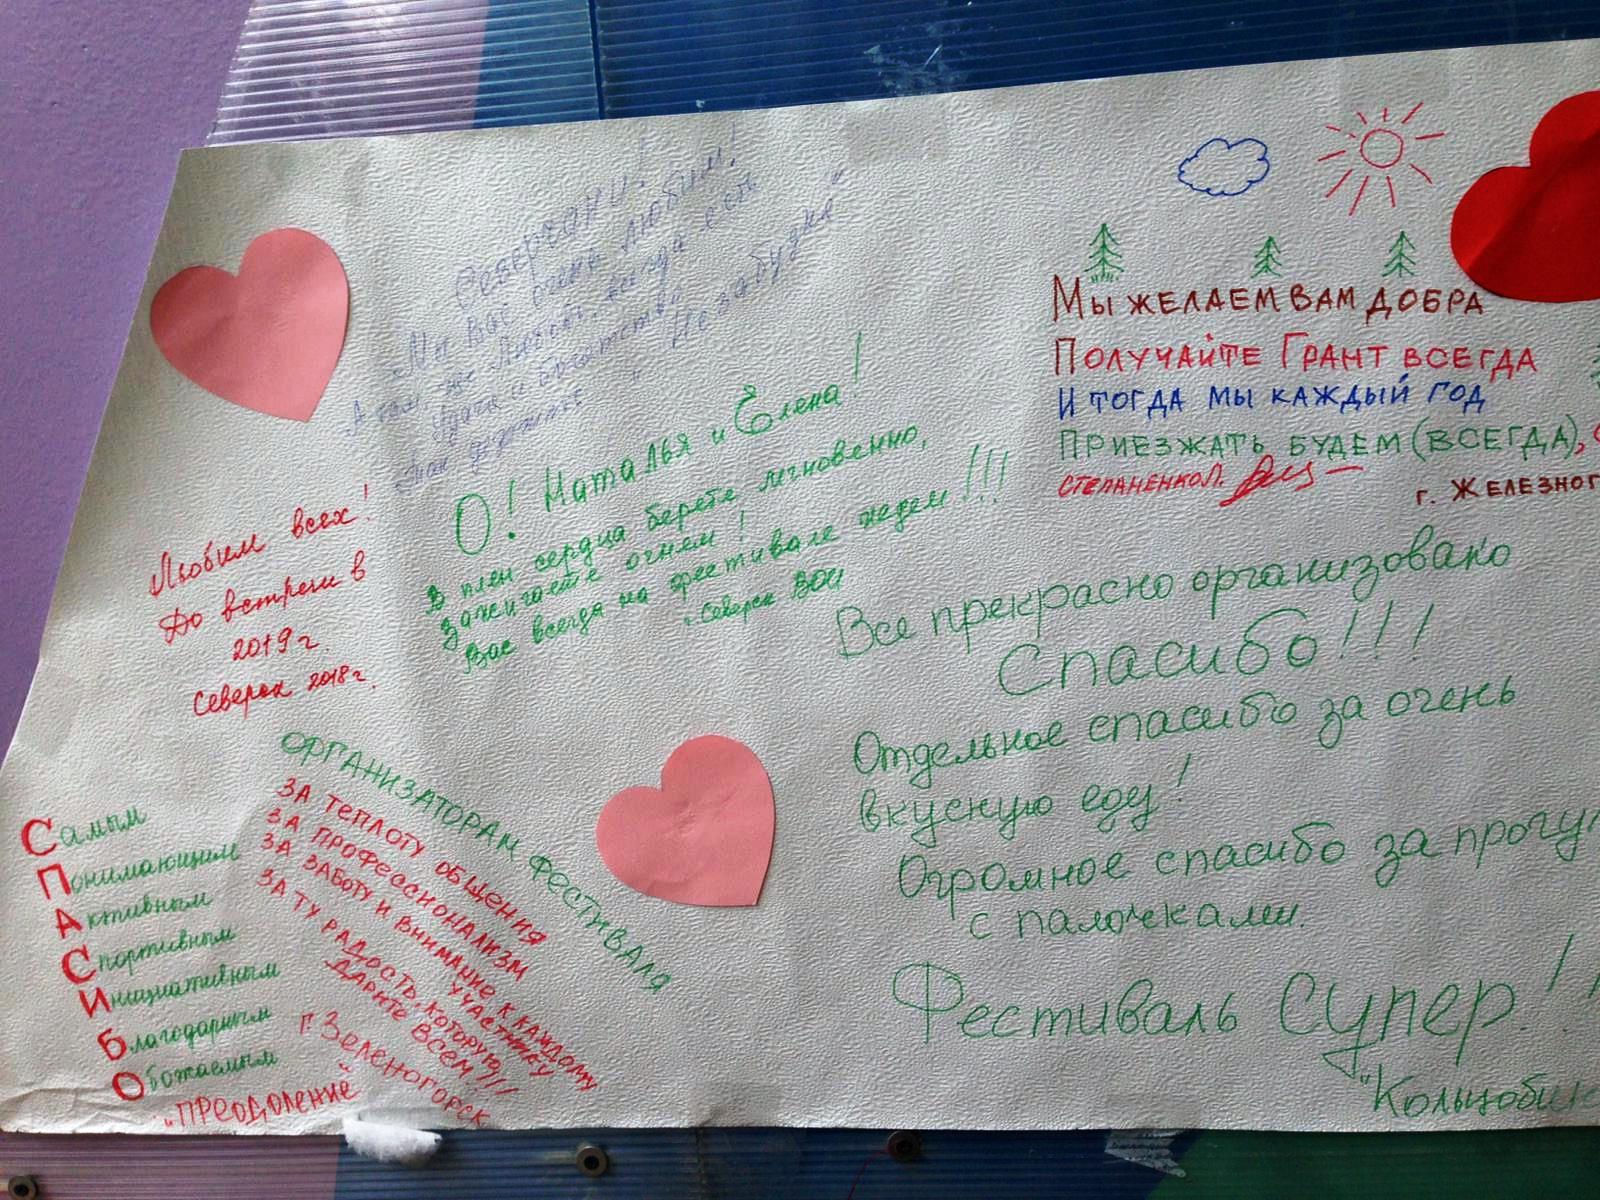 Северчани!
Мы Вас очень любим!
А там где Любовь, всегда есть
Удача и богатство"
Так держите "Незабудка"
О! Наталья и Елена!
В плен сердца берете мгновенно,
зажигаете огнем!
Вас всегда на фестивале ждем!!!
г. Северск ВОИ
Любим всех!
До встречи в
2019 г.
Северск 2018 г.
Мы желаем вам добра
Получайте Грант всегда
И тогда мы каждый год
Приезжать будем (всегда),
Степаненко Л.
г. Железног
Все прекрасно организовано
Спасибо!!!
Отдельное спасибо за очень
вкусную еду!
Огромное спасибо за прогул
с палочками.
Фестиваль Супер!!
"Кольцо
Организаторам фестиваля
За теплоту общения
За профессионализм
За заботу и внимание к каждому
участнику
За ту радость, которую
дарите всем!!!
г. Зеленогорск
Самым
Понимающим
Активным
Спортивным
Инициативным
Благодарным
Обожаемым
"Преодоление